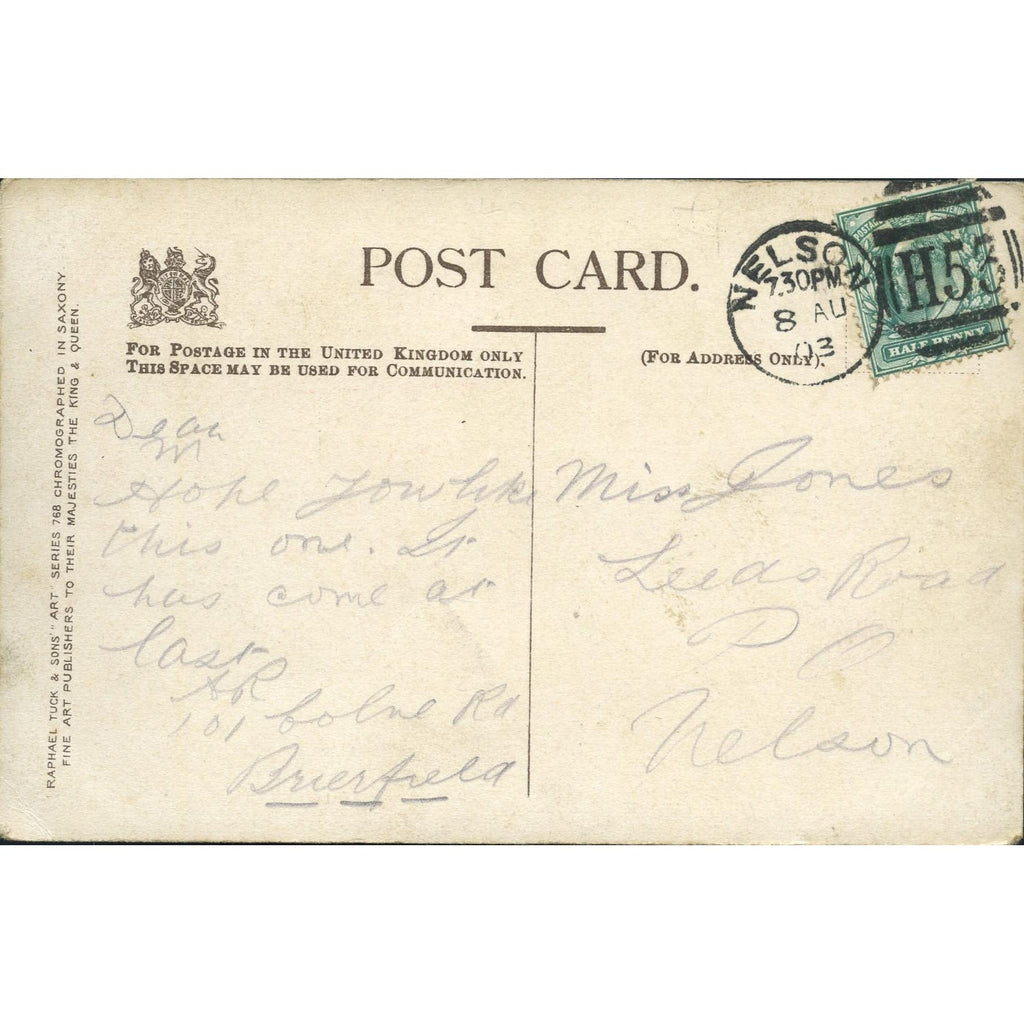 POST CARD.
FOR POSTAGE IN THE UNITED KINGDOM ONLY
THIS SPACE MAY BE USED FOR COMMUNICATION.
(FOR ADDRESS ONLY).
NELSON
7.30PM
8 AU
03
H53
HALF PENNY
RAPHAEL TUCK & SONS' "ART" SERIES 768 CHROMOGRAPHED IN SAXONY
FINE ART PUBLISHERS TO THEIR MAJESTIES THE KING & QUEEN.
Dear
M
Hope you like
this one. It
has come at
last
AR
101 Colne Rd
Brierfield
Miss Jones
Leeds Road
P O
Nelson